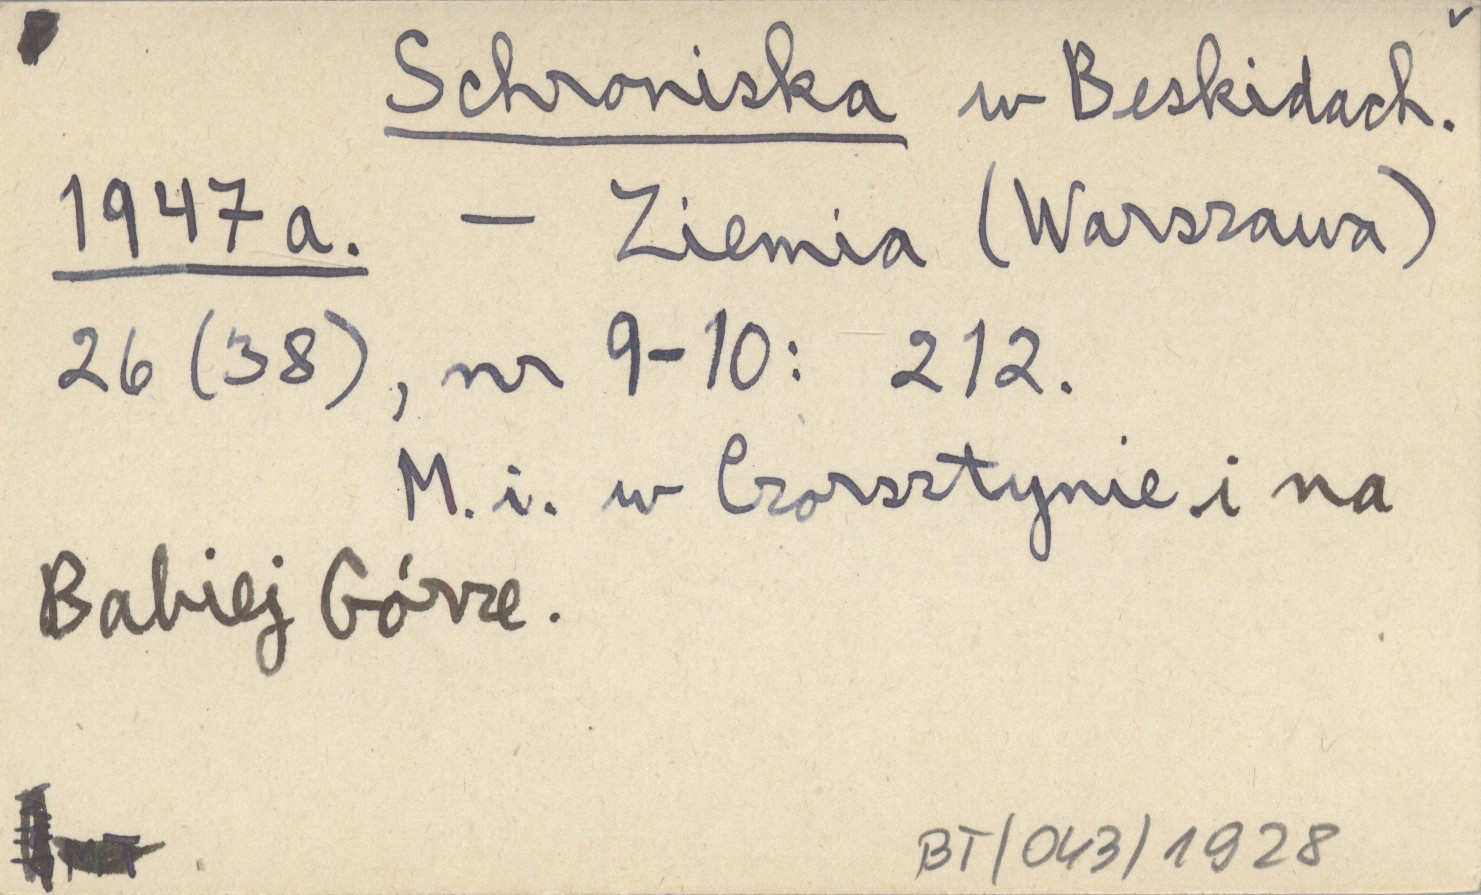 Schroniska w Beskidach.
1947 a. – Ziemia (Warszawa)
26 (38), nr 9–10: 212.
M. i. w Czorsztynie i na
Babiej Górze.
BT/043/1928